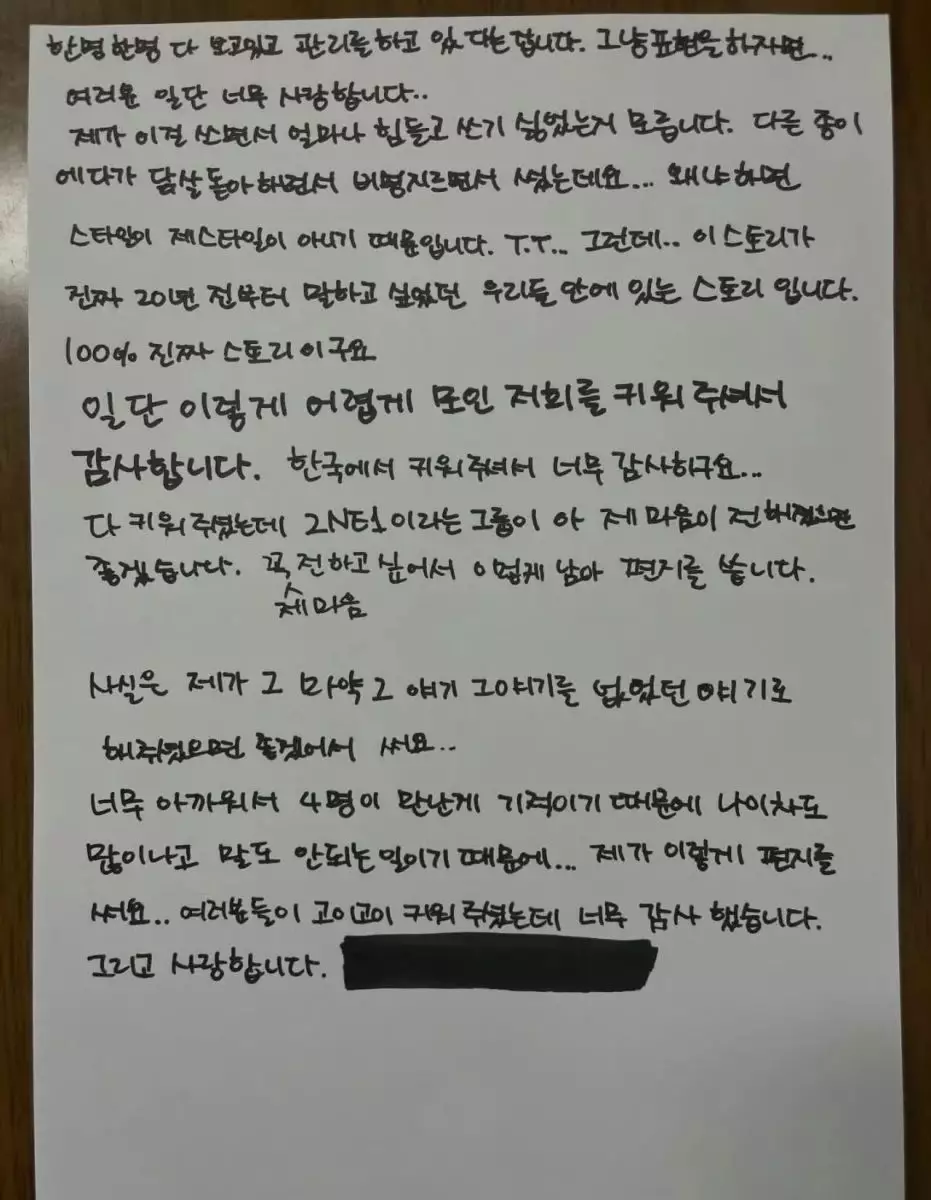 한명 한명 다 보고있고 관리를 하고 있다는 겁니다. 그냥 표현을 하자면..
여러분 일단 너무 사랑합니다..
제가 이걸 쓰면서 얼마나 힘들고 쓰기 싫었는지 모릅니다. 다른 종이
에다가 닭살 돋아하면서 비명지르면서 썼는데요... 왜냐하면
스타일이 제스타일이 아니기 때문입니다. T.T... 그런데.. 이 스토리가
진짜 20년 전부터 말하고 싶었던 우리들 안에 있는 스토리 입니다.
100% 진짜 스토리 이구요
일단 이렇게 어렵게 모인 저희를 키워 주셔서
감사합니다. 한국에서 키워주셔서 너무 감사하구요...
다 키워 주셨는데 2NE1이라는 그룹이 아 제 마음이 전해졌으면
좋겠습니다. 꼭 전하고 싶어서 이렇게 남아 편지를 씁니다.
제 마음
사실은 제가 그 마약 그 얘기 그 얘기를 없었던 얘기로
해주셨으면 좋겠어서 써요..
너무 아까워서 4명이 만난게 기적이기 때문에 나이차도
많이나고 말도 안되는 일이기 때문에... 제가 이렇게 편지를
써요.. 여러분들이 고이고이 키워 주셨는데 너무 감사 했습니다.
그리고 사랑합니다.